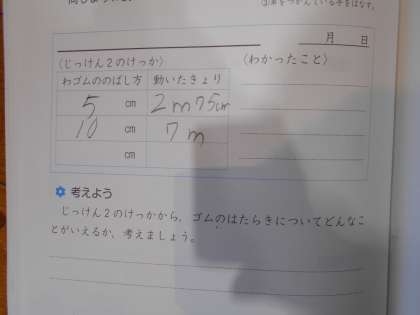 月　日
（じっけん２のけっか）
（わかったこと）
わゴムののばし方　動いたきょり
5 cm　2m75cm
10 cm　7m
cm
考えよう
じっけん２のけっかから、ゴムのはたらきについてどんなこ
とがいえるか、考えましょう。